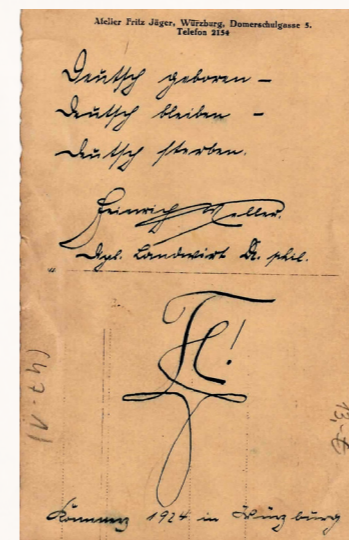 Atelier Fritz Jäger, Würzburg, Domerschulgasse 5.
Telefon 2154
Deutsch geboren –
Deutsch bleiben –
Deutsch sterben.
Heinrich Keller.
Dipl. Landwirt Dr. phil.
1924 in Würzburg